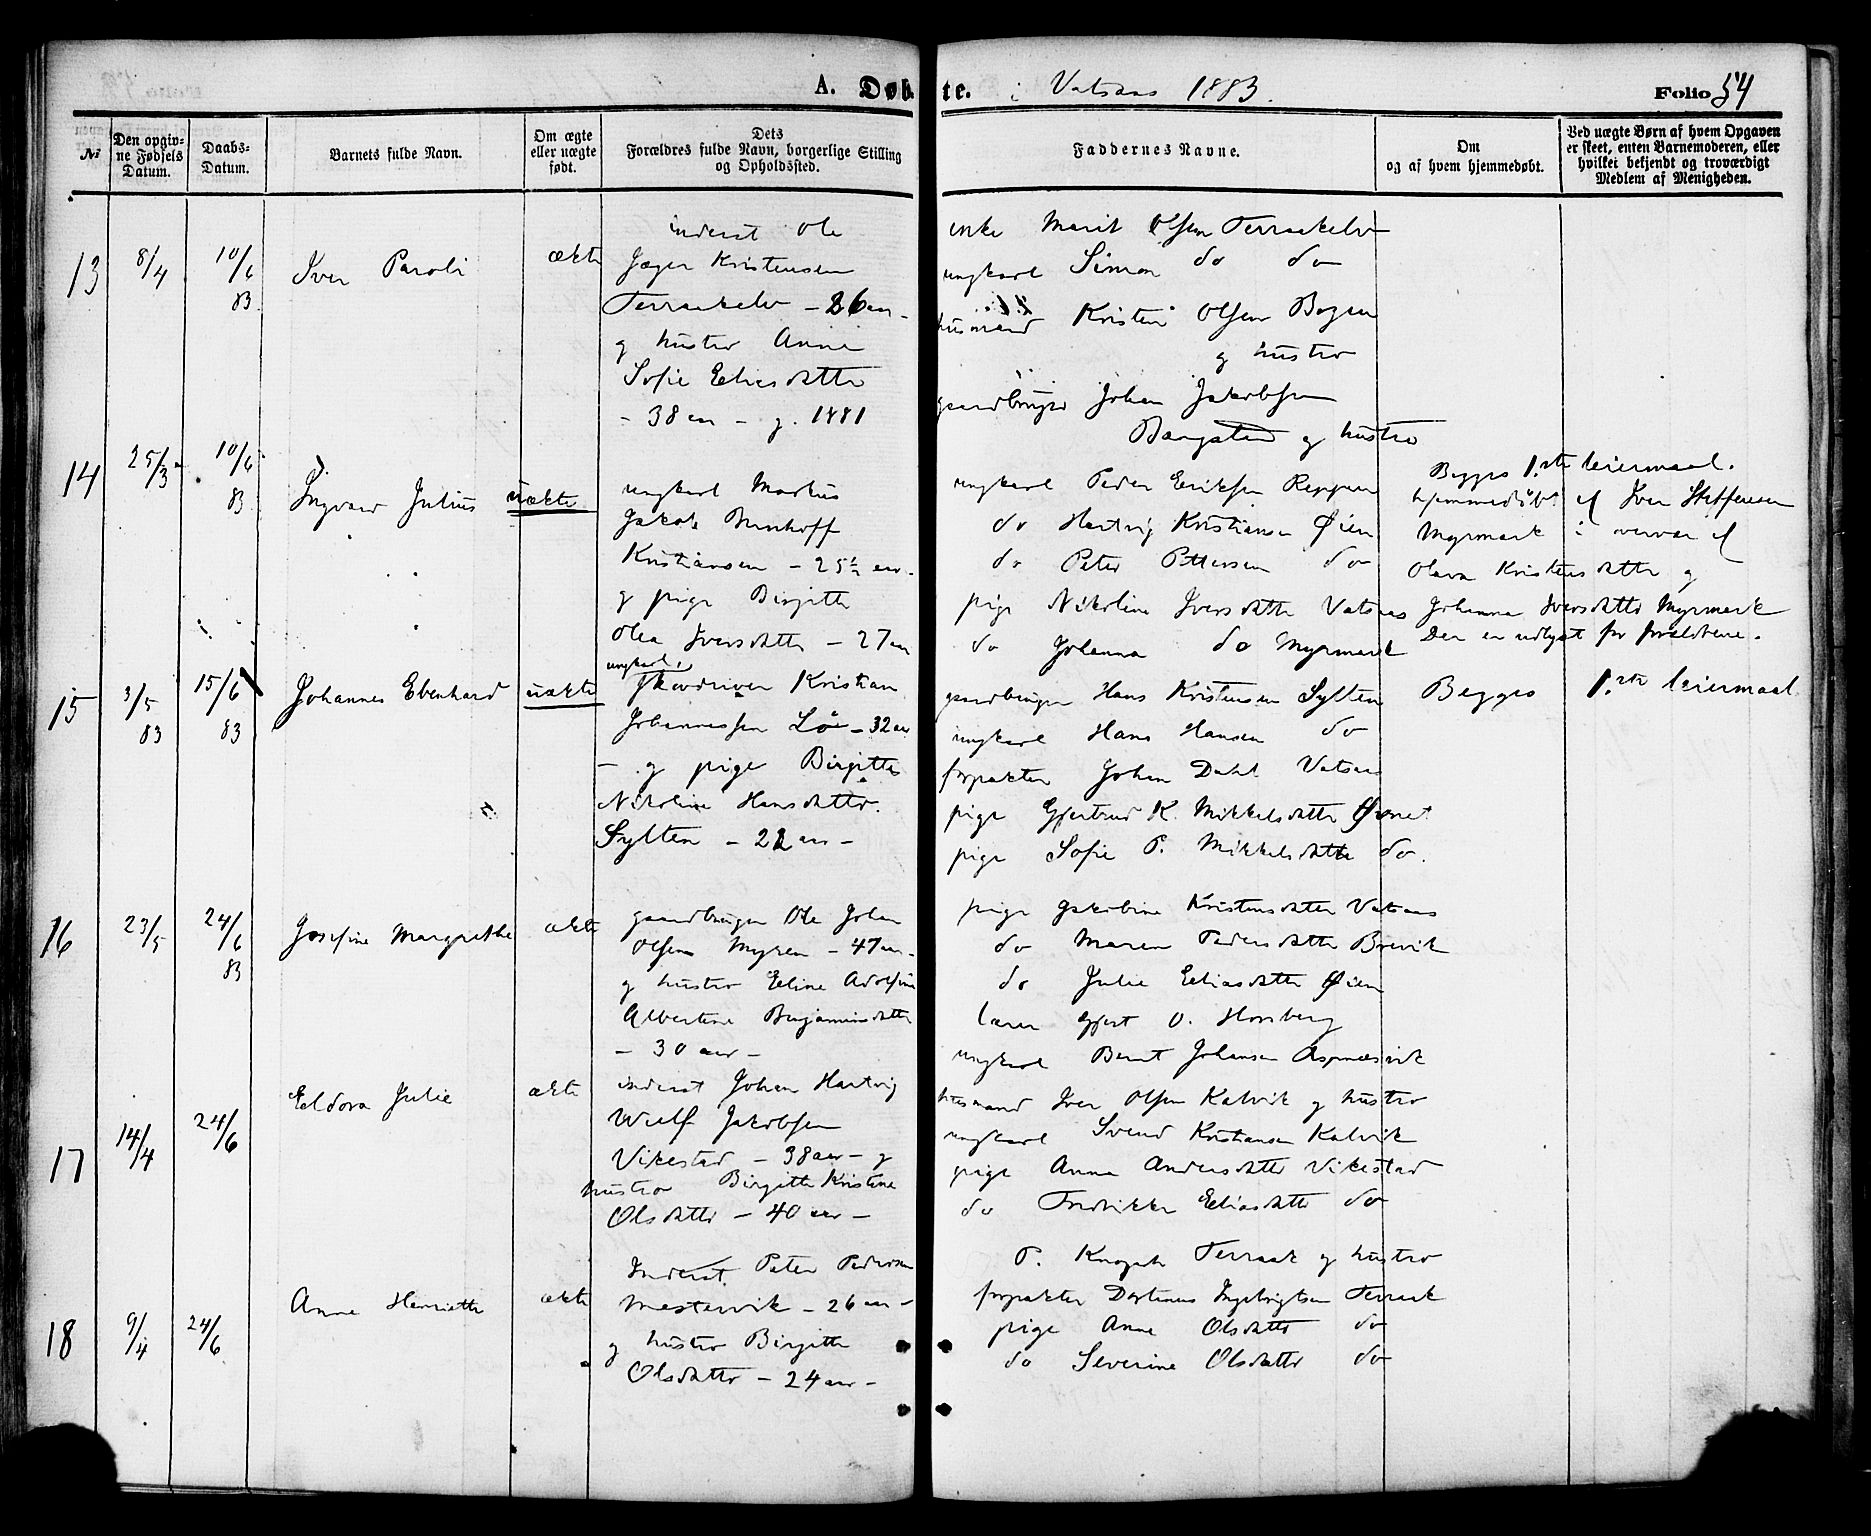 A. Døbte. i Vatsaas 1883. Folio 54
No
Den opgivne Fødsels Datum.
Daabs-Datum.
Barnets fulde Navn.
Om ægte eller uægte født.
Dets Forældres fulde Navn, borgerlige Stilling og Opholdssted.
Faddernes Navne.
Om og af hvem hjemmedøbt.
Ved uægte Børn af hvem Opgaven er skeet, enten Barnemoderen, eller hvilket bekjendt og troværdigt Medlem af Menigheden.
13 8/4 10/6 83 Iver Paroli ækte
inderst Ole
Jæger Kristensen
Terraakelv - 26 aar -
og hustro Anne
Sofie Eliasdatter
- 38 aar - g. 1881
enke Marit Olsen Terraakelv
ungkarl Simon do do
husmand Kristen Olsen Bogen
og hustro
gaardbruger Johan Jakobsen
Bangstad og hustro
14 25/3 10/6 83 Ingvard Julius uækte
ungkarl Markus
Jakob
Kristiansen - 25½ aar -
og pige Birgitte
Olea Iversdatter - 27 aar
ungkarl Peder Eriksen Reppen
do Hartvig Kristiansen Øien
do Peter Pettersen do
pige Nikoline Iversdatter Vatsaas
do Johanna do Myrmark
Begges 1.ste leiermaal.
hjemmedøbt af Iver Steffensen
Myrmark i overvær af
Olava Kristensdatter og
Johanna Iversdatter Myrmark
Der er udlyst for forældrene.
15 3/5 83 15/6 83 Johannes Ebenhard uækte
ungkarl,
Skovdriver Kristian
Johannessen Lø - 32 aar
- og pige Birgitte
Nikoline Hansdatter
Sylten - 22 aar -
gaardbruger Hans Kristensen Sylten
ungkarl Hans Hansen do
forpakter Johan Dahl Vatsaas
pige Gjertrud K. Mikkelsdatter
pige Sofie P. Mikkelsdatter do.
Begges 1.ste leiermaal
16 23/5 24/6 83 Josefine Margrethe ækte
gaardbruger Ole Johan
Olsen Myren - 47 aar -
og hustro Eline Adolfine
Albertine Benjaminsdatter
- 30 aar -
pige Jakobine Kristensdatter Vatsaas
do Maren Pedersdatter Brevik
do Julie Eliasdatter Øien
lærer Gjert O. Horsberg
ungkarl Bernt Johansen Aspnæsvik
17 14/4 24/6 Eldora Julie ækte
inderst Johan Hartvig
Wulf Jakobsen
Vikestad - 38 aar - og
hustro Birgitte Kristine
Olsdatter - 40 aar -
husmand Iver Olsen Kalvik og hustro
ungkarl Svend Kristiansen Kalvik
pige Anna Andersdatter Vikestad
do Fredrikke Eliasdatter do
18 9/4 24/6 Anne Henriette ækte
Inderst. Peter Pedersen
Mestervik - 26 aar -
og hustro Birgitte
Olsdatter - 24 aar -
P. Knoph Terraak og hustro
forpakter Dortinus Ingebrigtsen Terraak
pige Anne Olsdatter do
do Severine Olsdatter do